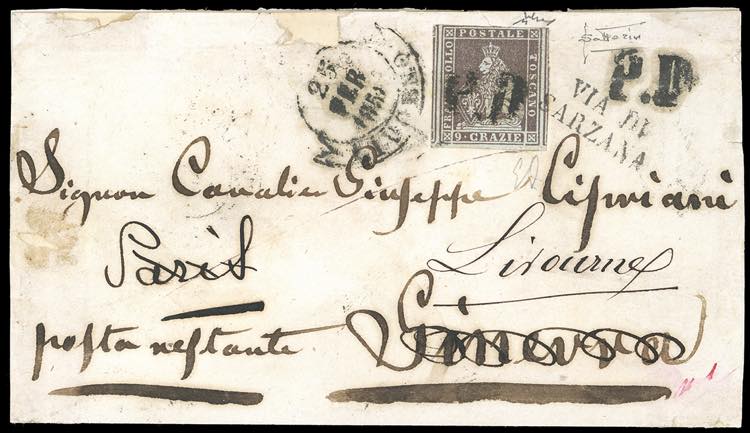 25
FEB
FRANCOBOLLO POSTALE TOSCANO
9. GRAZIE
P.D
P.D
VIA DI
SARZANA
Signor Cavalier Giuseppe Cipriani
Paris
Livourne
posta restante
Ginevra